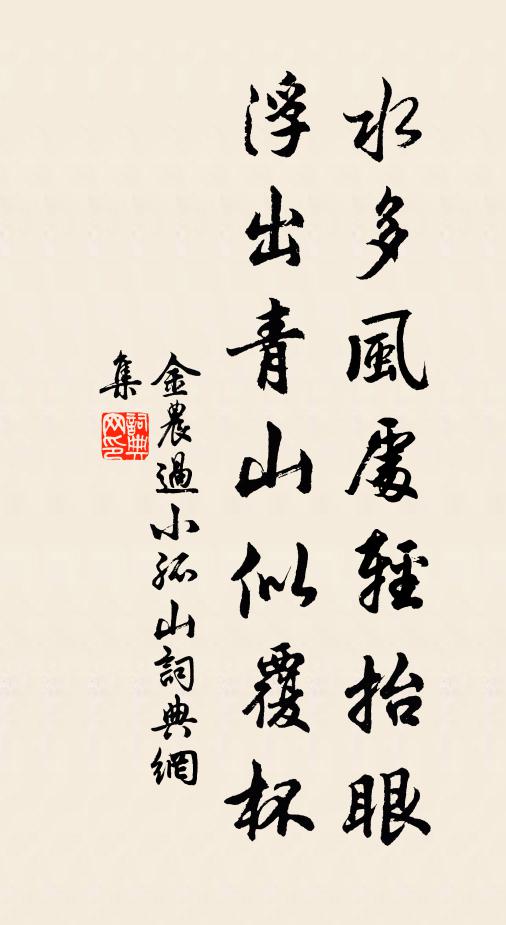 水多風處輕抬眼
浮出青山似覆杯
金農過小孤山詞典網
集
詞典
网印